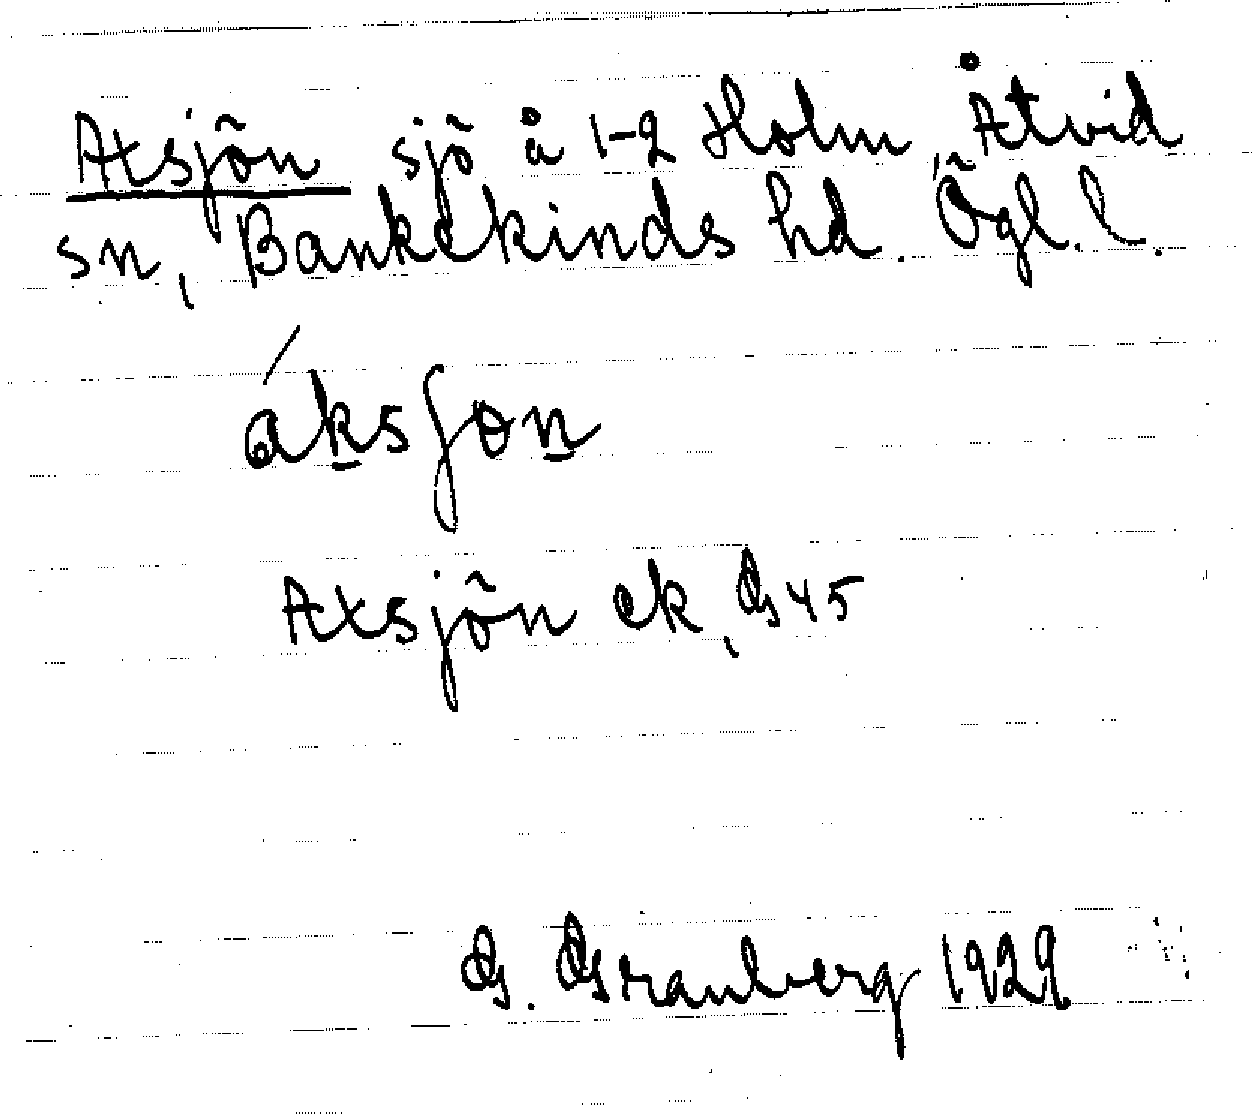 Axsjön sjö å 1-2 Holm, Åtvid
sn, Bankekinds hd. Ögl. l.
áksjon
Axsjön ek, G 45
G. Granberg 1929